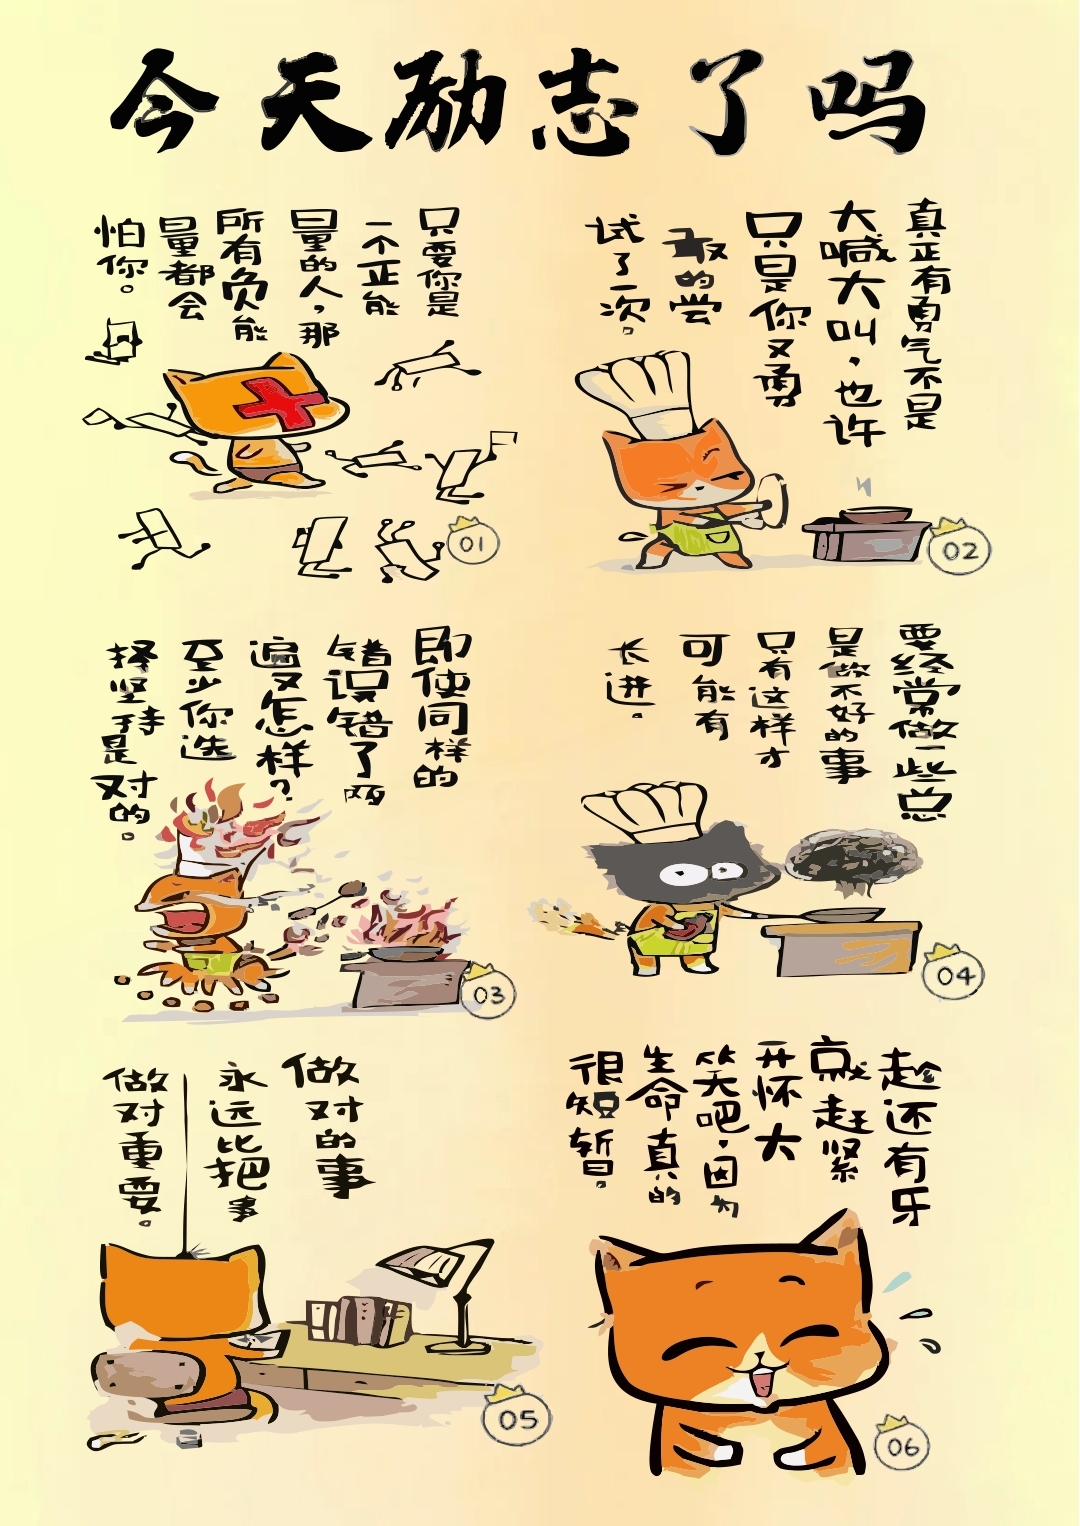 今天励志了吗
只要你是
一个正能
量的人，那
所有负能
量都会
怕你。
01
真正有勇气不是
大喊大叫，也许
只是你又勇
敢的尝
试了一次。
02
即使同样的
错误错了两
遍又怎样？
至少你选
择坚持是
对的。
03
要经常做一些总
是做不好的事
只有这样才
可能有
长进。
04
做对的事
永远比把事
做对重要。
05
趁还有牙
就赶紧
开怀大
笑吧，因为
生命真的
很短暂。
06